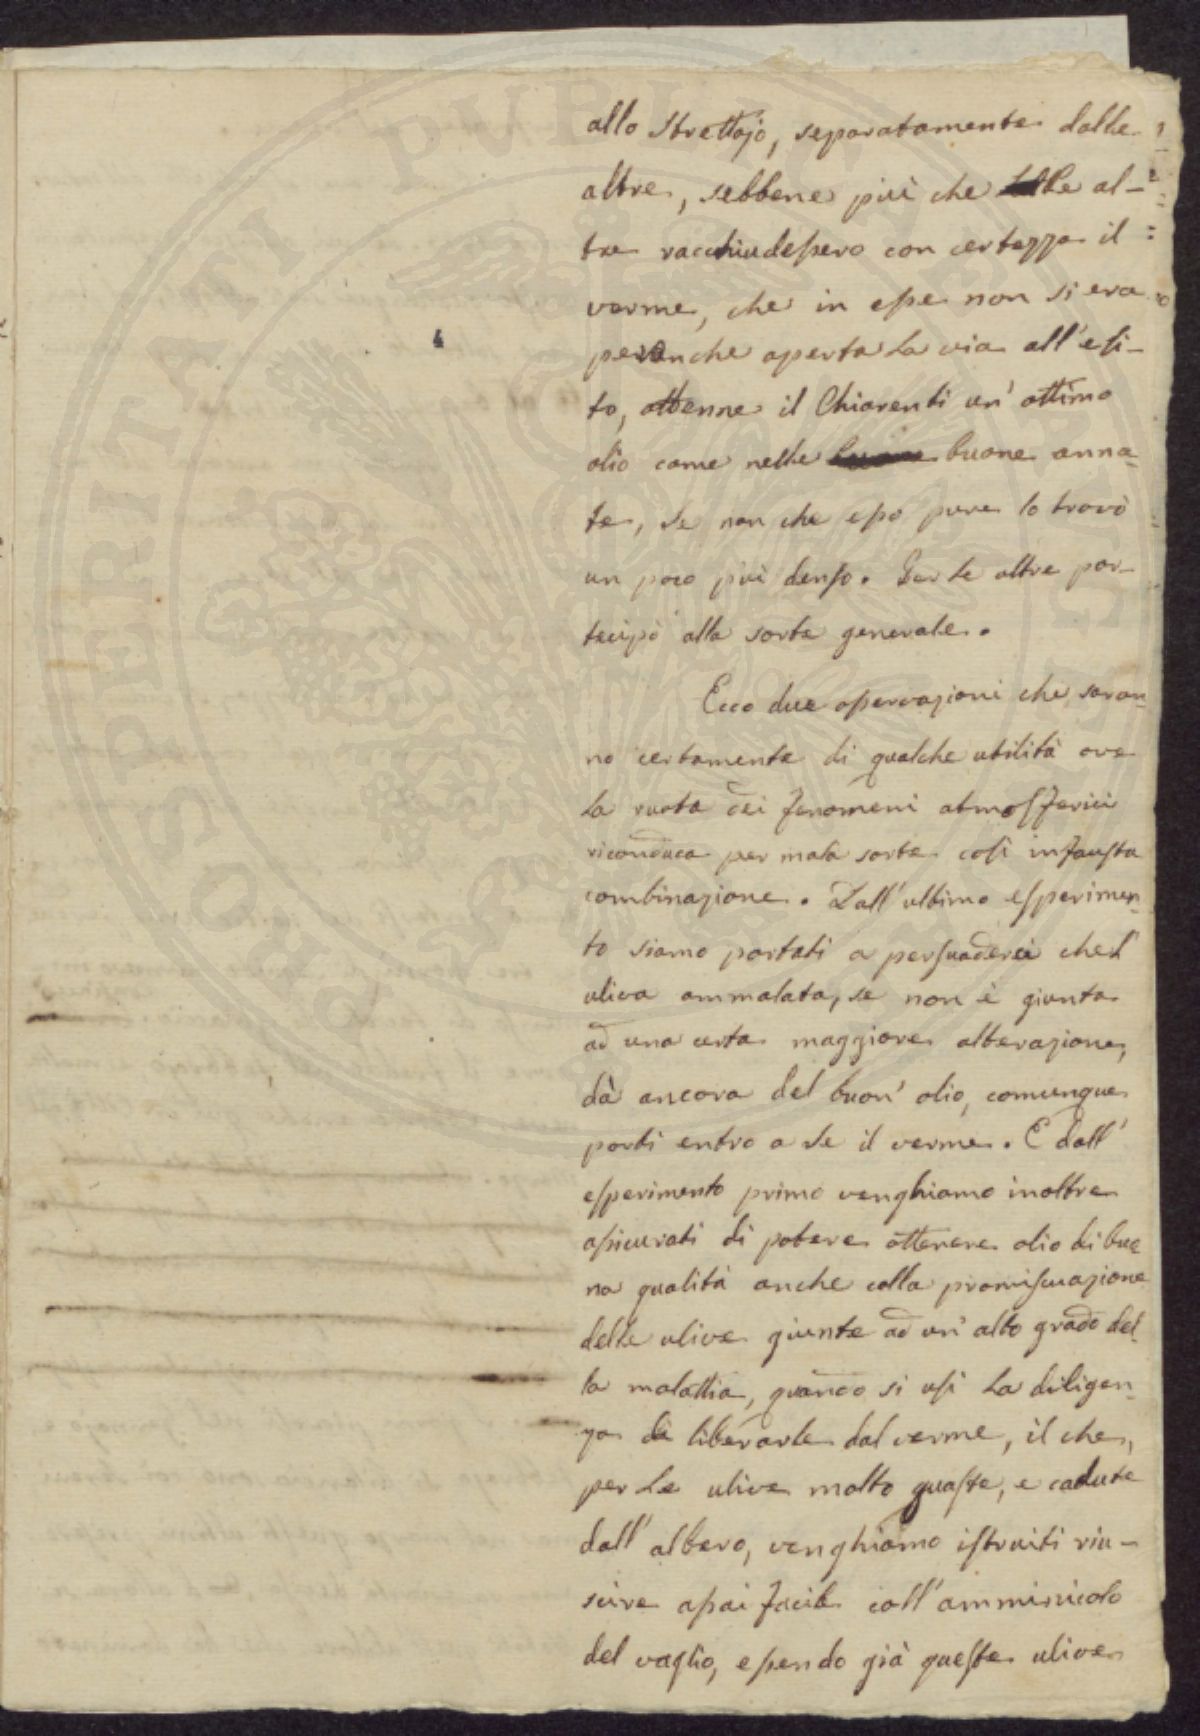 allo Strettojo, separatamente dalle
altre, sebbene più che le al-
tre racchiudessero con certezza il
verme, che in esse non si era
peranche aperta la via all'esi-
to, ottenne il Chiarenti un' ottimo
olio come nelle buone anna-
te, se non che esso pure lo trovò
un poco più denso. Per le altre par-
tecipò alla sorte generale.
Ecco due osservazioni che saran-
no certamente di qualche utilità ove
la ruota dei fenomeni atmosferici
riconduca per mala sorte così infausta
combinazione. Dall' ultimo esperimen-
to siamo portati a persuaderci che l'
uliva ammalata, se non è giunta
ad una certa maggiore alterazione,
dà ancora del buon' olio, comunque
porti entro a se il verme. E dall'
esperimento primo venghiamo inoltre
assicurati di potere ottenere olio di buo
na qualità anche colla promiscuazione
delle ulive giunte ad un' alto grado del-
la malattia, quando si usi la diligen-
za di liberarle dal verme, il che,
per le ulive molto guaste, e cadute
dall' albero, venghiamo istruiti riu-
scire assai facile coll' amminicolo
del vaglio, essendo già queste ulive
PROSPERITATI PUBLICAE AUGENDAE